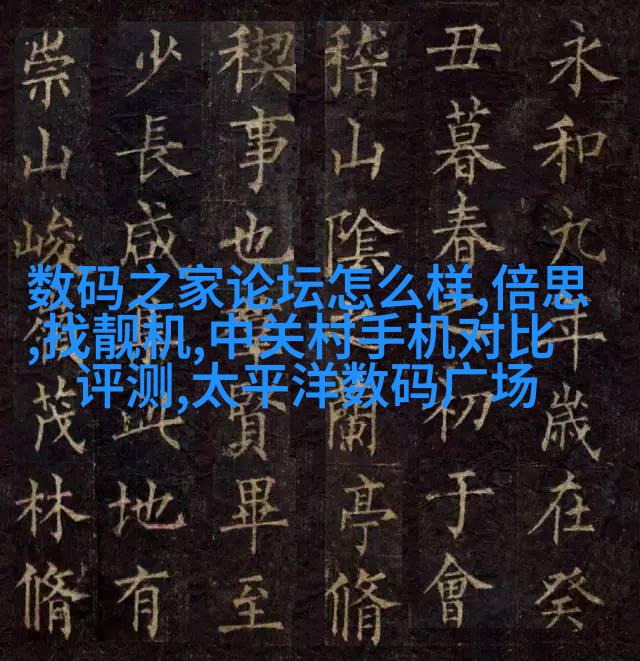 数码之家论坛怎么样,倍思
,找靓机,中关村手机对比
评测,太平洋数码广场
永和九年歲在癸
丑暮春之初于會
稽山陰之蘭亭脩
稧事也羣賢畢至
少長咸集此地有
崇山峻領茂林脩